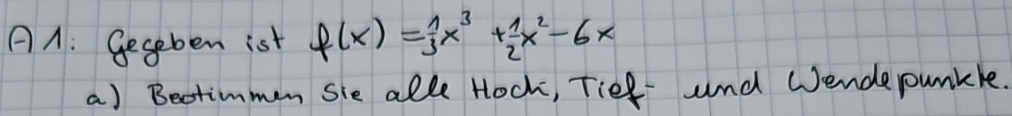 A1: Gegeben ist f(x) = 1/3 x³ + 1/2 x² - 6x
a) Bestimmen Sie alle Hoch, Tief- und Wendepunkte.